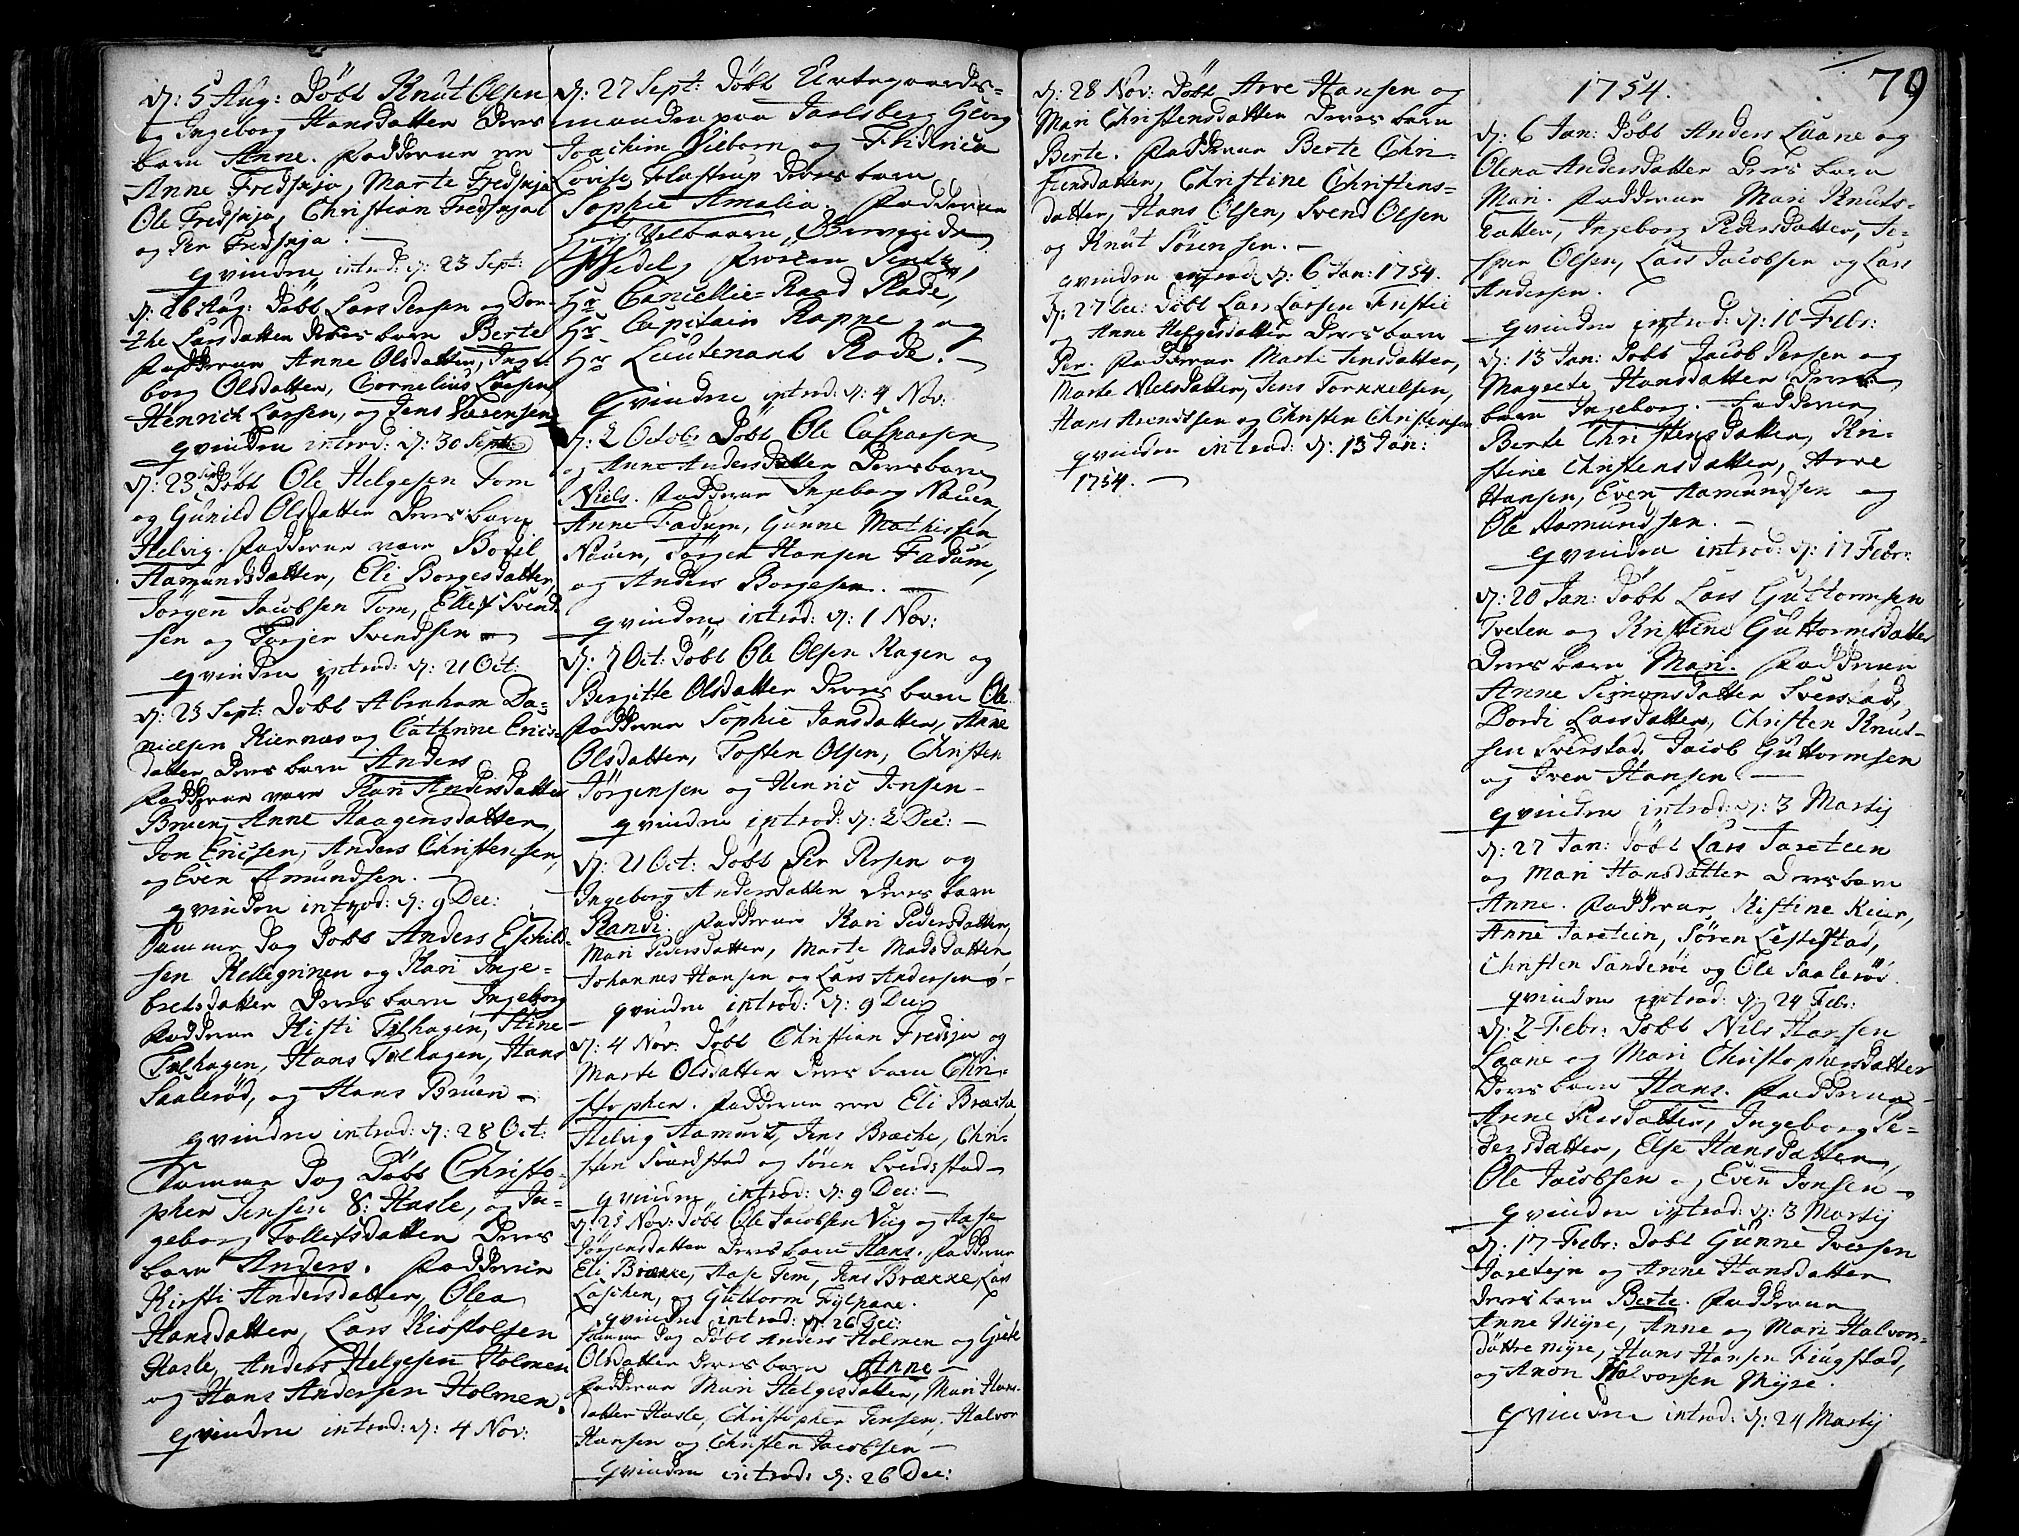 d: 5 Aug: Döbt Knut Olsen
og Ingeborg Hansdatter Deres
barn Anne. Fadderne ere
Anne Fredsnja, Marte Fredsnja
Ole Fredsnja, Christian Fredsnja
og Per Fredsnja.
qvinden introd: d: 23 Sept:
d: 26 Aug: Döbt Lars Persen og Dor-
the Larsdatter Deres barn Berte
Fadderne Anne Olsdatter, Inge
borg Olsdatter, Cornelius Larsen
Henrick Larsen, og Jens Sörensen
qvinden introd: d: 30 Sept:
d: 23 Döbt Ole Helgesen Tom
og Gunild Olsdatter Deres barn
Helvig. Fadderne vare Bodil
Aamundsdatter, Eli Borgesdatter,
Jörgen Jacobsen Tom, Ellef Svend
sen og Torjer Svendsen
qvinden introd: d: 21 Oct:
d: 23 Sept: Döbt Abraham Da-
nielsen Kiernæs og Cathrine Erics
datter Deres barn Anders
Fadderne vare Kari Andersdatter
Bruen, Anne Haagensdatter,
Jon Ericsen, Anders Christensen,
og Even Amundsen.
qvinden introd: d: 9 Dec:
Samme Dag Döbt Anders Eschild-
sen Kellegrinen og Kari Inge-
bretsdatter Deres barn Ingeborg
Fadderne Kisti Felhagen, Stine
Felhagen, Hans Felhagen, Hans
Saaleröd, og Hans Bruen
qvinden introd: d: 28 Oct:
Samme Dag Döbt Christo-
pher Jensen 8: Hasle, og In-
geborg Tollefsdatter Deres
barn Anders. Fadderne
Kirsti Andersdatter, Olea
Hansdatter, Lars Kiöstolsen
Hasle, Anders Helgesen Holmen
og Hans Andersen Holmen.
qvinden introd: d: 4 Nov:
d: 27 Sept: Döbt Urtegaards-
manden paa Jarlsberg Georg
Joachim Vieborn og Friderica
Lovise Flastrup Deres barn
Sophie Amalia. Fadderne
Velbaarn,
Wedel, Frökin
Hr Cancellie-Raad Rode,
Hr Capitain Kappe, og
Hr Lieutenant Rode.
qvinden introd: d: 4 Nov:
d: 2 Octob: Döbt Ole Casparsen,
og Anne Andersdatter Deres barn
Niels. Fadderne Ingeborg Nauen,
Anne Fadum, Gunne Mathissen
Nauen, Jörgen Hansen Fadum,
og Anders Borgesen.
qvinden introd: d: 1 Nov:
d: 7 Oct: Döbt Ole Olsen Hagen og
Bergitte Olsdatter Deres barn Ole
Fadderne Sophie Jansdatter, Anne
Olsdatter, Tosten Olsen, Christen
Jörgensen og Henric Jonsen
qvinden introd: d: 2 Dec:
d: 21 Oct: Döbt Per Persen og
Ingeborg Andersdatter Deres barn
Randi. Fadderne Kari Pedersdatter,
Mari Pedersdatter, Marte Madsdatter
Johannes Hansen og Lars Andersen
qvinden introd: d: 9 Dec:
d: 4 Nov: Döbt Christian Fredsja og
Marte Olsdatter Deres barn Chri-
stopher. Fadderne ere Eli Bræche,
Helvig Aamunt, Jens Bræche, Chri-
sten Svendstad og Sören Svendstad
qvinden introd: d: 9 Dec:
d: 25 Nov: Döbt Ole Jacobsen Vug og Aase
Jörgensdatter Deres barn Hans. Fadderne
Eli Brække, Aase Tem, Jens Brække, Lars
Laschen, og Guttorm Fylpaae.
qvinden introd: d: 26 Dec:
Samme Dag Döbt Anders Holmen og Grete
Olsdatter Deres barn Anne
Fadderne Mari Helgesdatter, Mari Hans-
datter Hasle, Christopher Jensen, Halvor
Hansen og Christen Jacobsen
qvinden introd: d: 26 Dec:
d: 28 Nov: Döbt Arve Hansen og
Mari Christensdatter Deres barn
Berte. Fadderne Berte Chri-
stensdatter, Christine Christens-
datter, Hans Olsen, Svend Olsen
og Knut Sörensen.
qvinden introd: d: 6 Jan: 1754.
d: 27 Dec: Döbt Lars Larsen Tristie
og Anne Helgesdatter Deres barn
Per. Fadderne Marte Jensdatter,
Marte Nielsdatter, Jens Torkkelsen,
Hans Arendtsen og Christen Christensen
qvinden introd: d: 13 Jan:
1754.
79
1754.
d: 6 Jan: Döbt Anders Laane og
Olena Andersdatter Deres barn
Mari. Fadderne Mari Knuts-
datter, Ingeborg Pedersdatter, Je-
sper Olsen, Lars Jacobsen og Lars
Andersen.
qvinden introd: d: 10 Febr:
d: 13 Jan: Döbt Jacob Persen og
Magrete Hansdatter Deres
barn Ingeborg. Fadderne
Berte Christensdatter, Kri-
stine Christensdatter, Arve
Hansen, Even Aamundsen og
Ole Aamundsen.
qvinden introd: d: 17 Febr:
d: 20 Jan: Döbt Lars Guttormsen
Tveten og Kristine Guttormsdatter
Deres barn Mari. Fadderne
Anne Simonsdatter Sverstad,
Dordi Larsdatter, Christen Knud-
sen Sverstad, Jacob Guttormsen
og Iver Hansen
qvinden introd: d: 3 Martij
d: 27 Jan: Döbt Lars Jareteen
og Mari Hansdatter Deres barn
Anne. Fadderne Kistine Keier,
Anne Jareteen, Sören Lestestad,
Christen Sanderöe og Ole Saaleröd.
qvinden introd: d: 24 Febr:
d: 2 Febr: Döbt Nils Hansen
Laane og Mari Christophersdatter
Deres barn Hans. Fadderne
Anne Persdatter, Ingeborg Pe-
dersdatter, Else Hansdatter,
Ole Jacobsen og Even Jonsen
qvinden introd: d: 3 Martij
d: 17 Febr: Döbt Gunne Iversen
Jaretejn og Anne Hansdatter
Deres barn Berte. Fadderne
Anne Myre, Anne og Mari Halvors-
döttre Myre, Hans Hansen Fiugstad,
og Anon Halvorsen Myre.
qvinden introd: d: 24 Martij